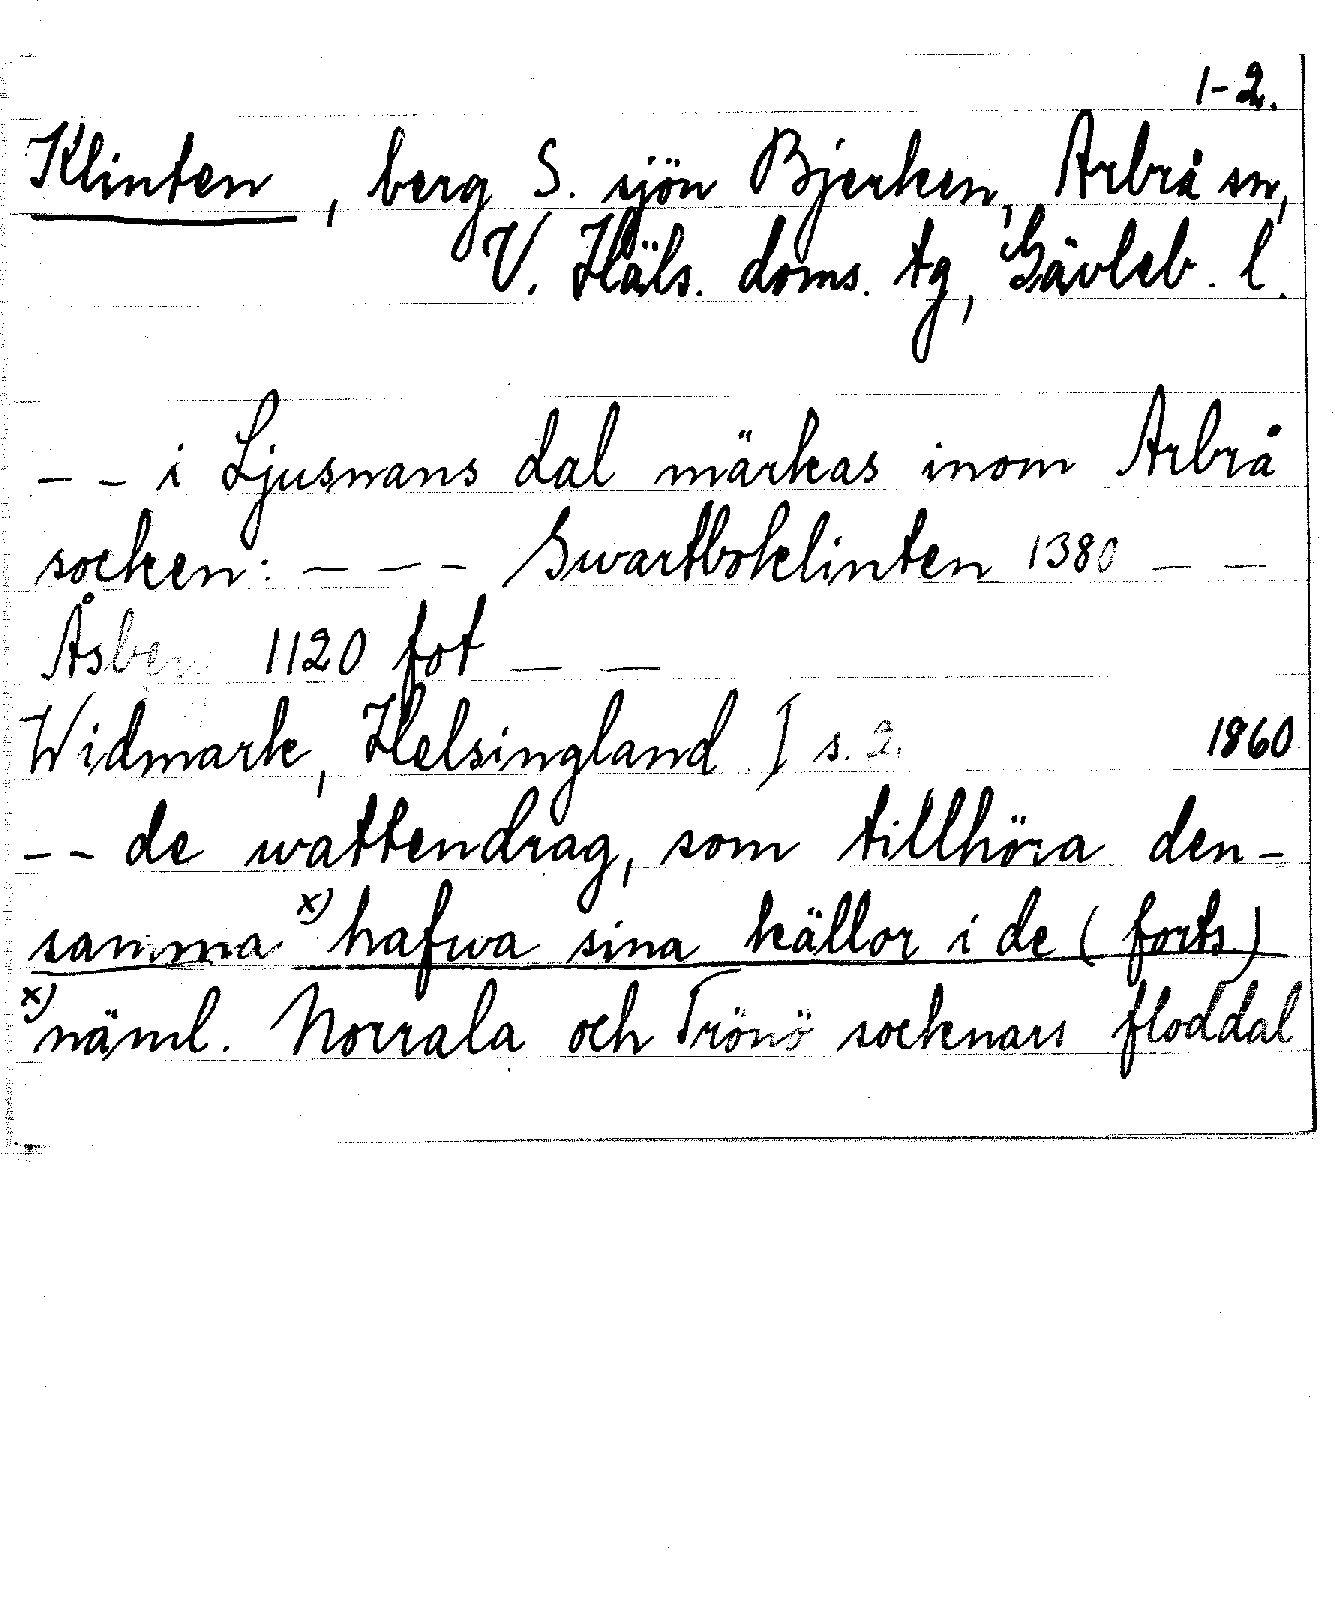 1-2.
Klinten, berg S. sjön Bjerken, Arbrå sn,
V. Häls. doms. tg, Gävleb. l.
- - i Ljusnans dal märkas inom Arbrå
socken: - - - Swartboklinten 1380 - -
Åsber 1120 fot - -
Widmark, Helsingland I s. 2. 1860
- - de wattendrag, som tillhöra den-
samma x) hafwa sina källor i de (forts)
x) näml. Norrala och Trönö socknars floddal